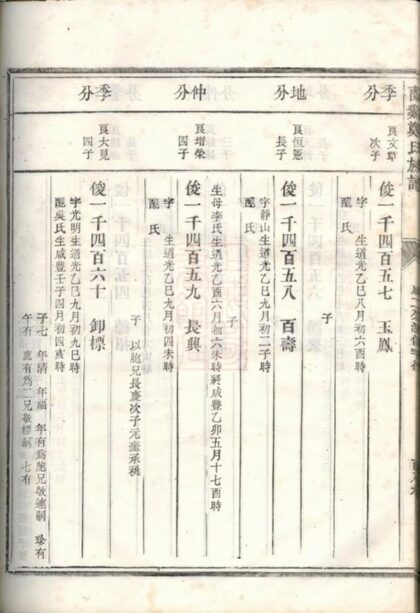 氏族譜
季分
良文章
次子
俊一千四百五七 玉鳳
字 生道光乙巳八月初六巳時
配 氏
子
地分
良恒憲
長子
俊一千四百五八 百壽
字靜山生道光乙巳九月初二子時
配 氏
子
仲分
良增榮
四子
生母李氏生道光乙酉六月初六未時終咸豐乙卯五月十七酉時
俊一千四百五九 長興
字 生道光乙巳九月初四未時
配 氏
子 以胞兄長慶次子元奎承祧
季分
良大見
四子
俊一千四百六十 卸標
字光明生道光乙巳九月初九巳時
配吳氏生咸豐壬子四月初四亥時
子七 年清 年福 年有為胞兄敬連嗣 珍有
午有 鹿有為二兄敬標嗣 七有